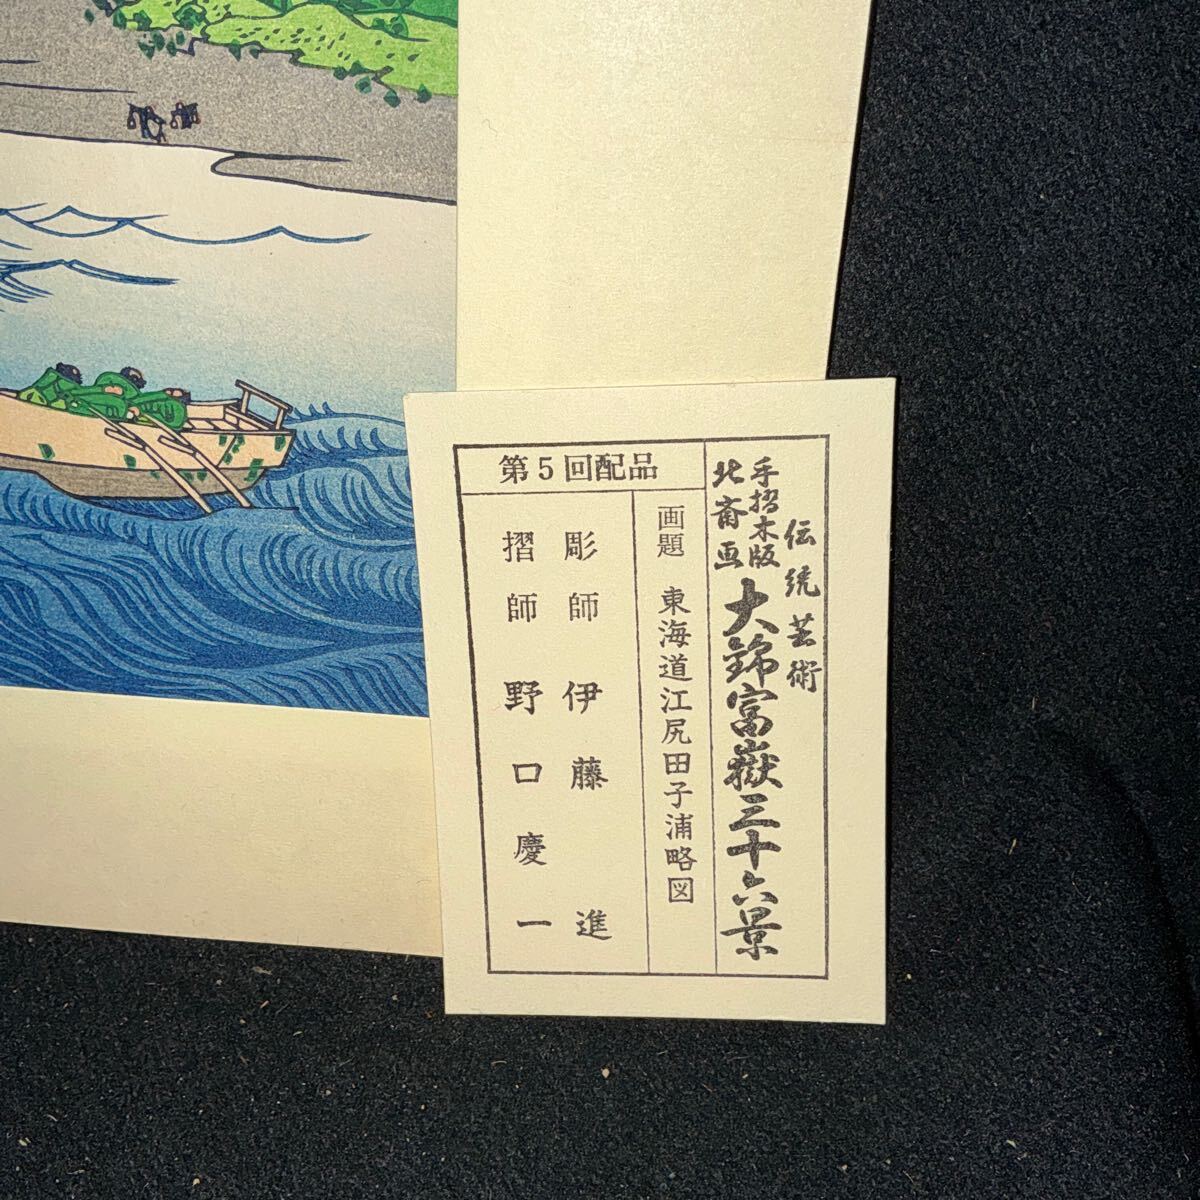 伝統芸術
手摺木版
北斎画
大錦富嶽三十六景
第5回配品
画題 東海道江尻田子浦略図
彫師 伊藤進
摺師 野口慶一